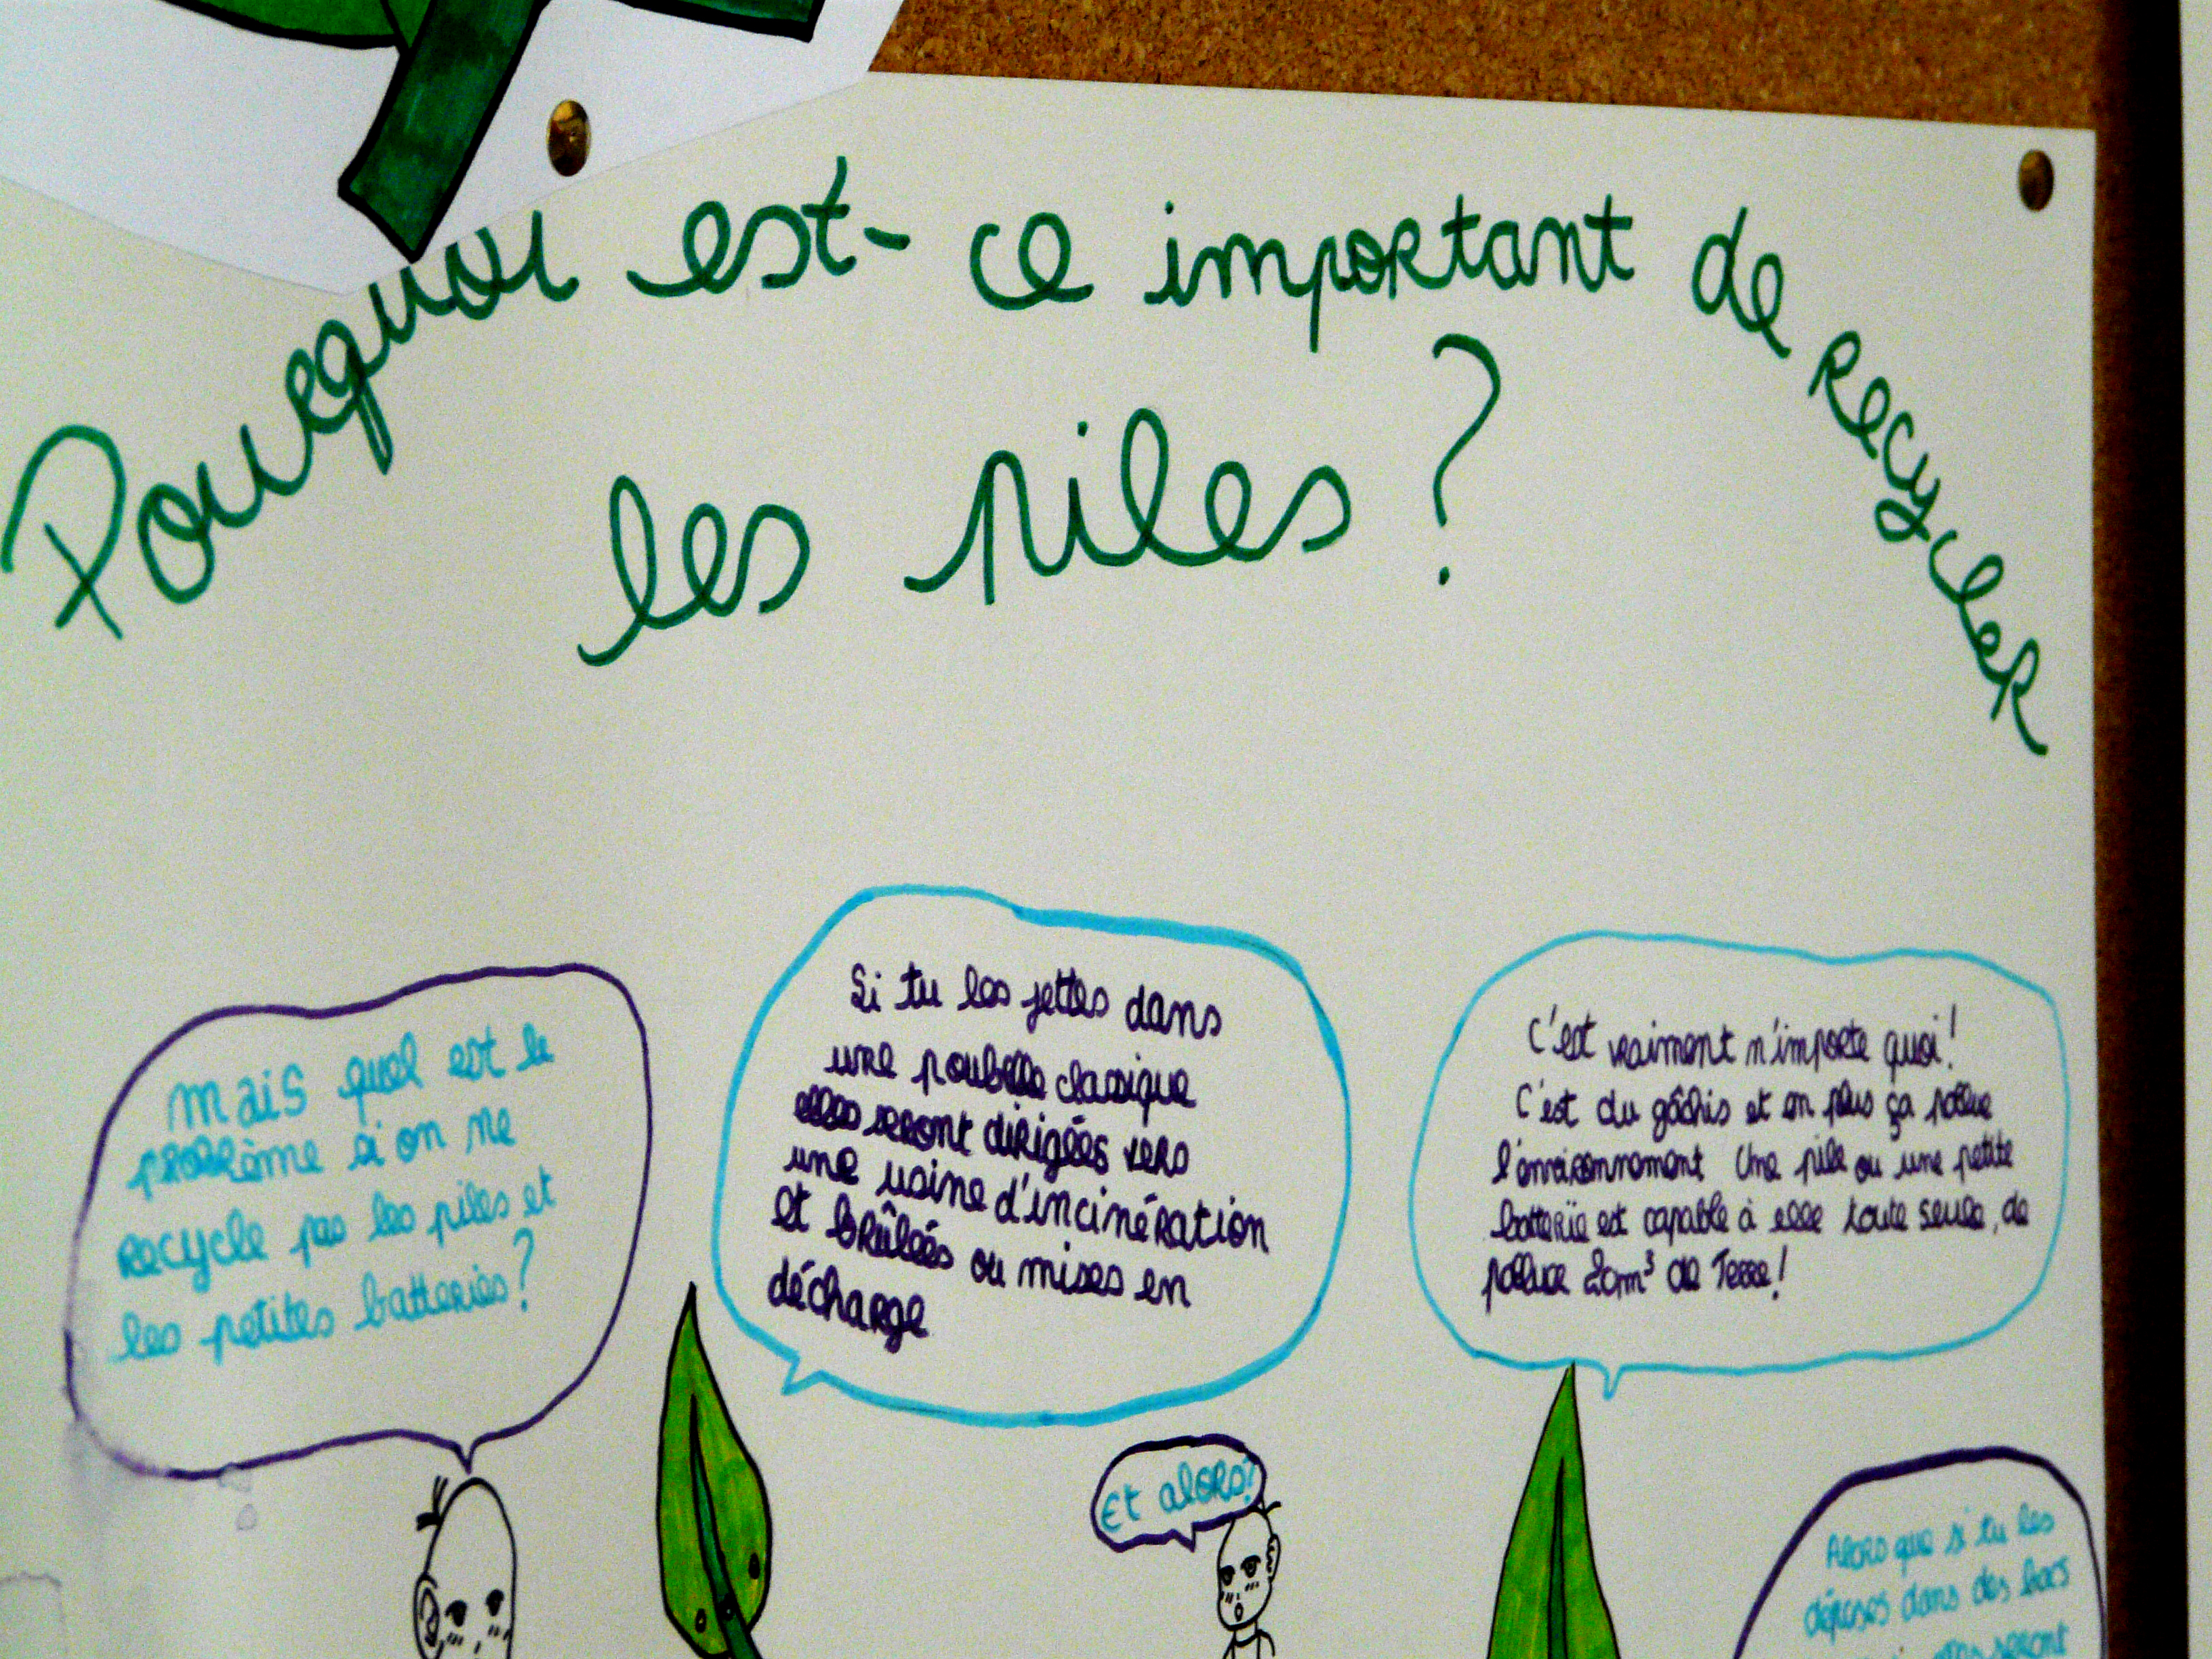 Pourquoi est-ce important de recycler
les piles ?
Mais quel est le
problème si on ne
recycle pas les piles et
les petites batteries ?
Si tu les jettes dans
une poubelle classique
elles seront dirigées vers
une usine d'incinération
et brûlées ou mises en
décharge
Et alors ?
C'est vraiment n'importe quoi !
C'est du gâchis et en plus ça pollue
l'environnement Une pile ou une petite
batterie est capable à elle toute seule, de
polluer 2cm³ de Terre !
Alors que si tu les
déposes dans des bacs
seront